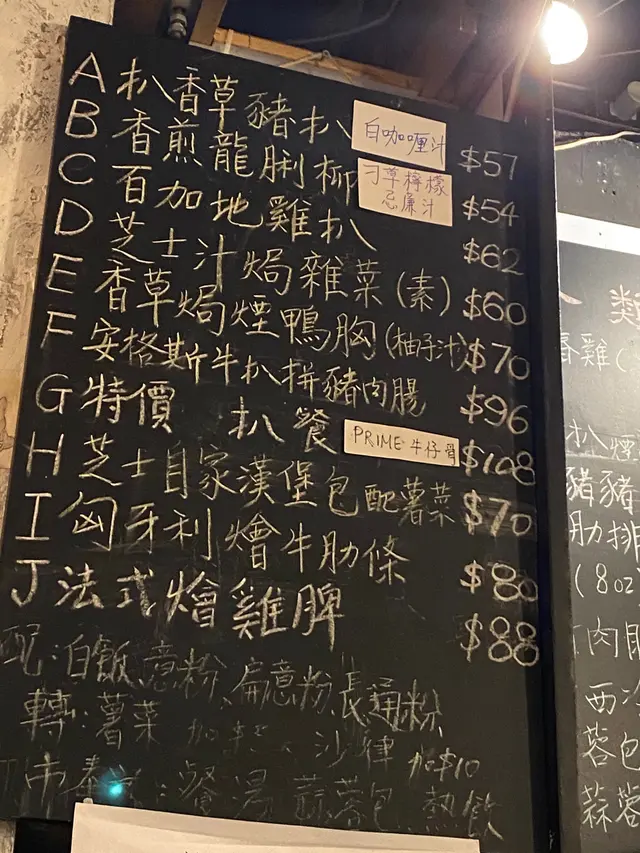 A 扒香草豬扒 白咖喱汁 $57
B 香煎龍脷柳 刁草檸檬忌廉汁 $54
C 百加地雞扒 $62
D 芝士汁焗雜菜(素) $60
E 香草焗煙鴨胸(柚子汁) $70
F 安格斯牛扒拼豬肉腸 $96
G 特價 扒餐 PRIME 牛仔骨 $108
H 芝士自家漢堡包配薯菜 $70
I 匈牙利燴牛肋條 $80
J 法式燴雞脾 $88
配:白飯意粉、扁意粉、長通粉
轉:薯菜 沙律 加$10
餐湯 蒜蓉包 熱飲
類
春雞(
扒 煙
豬豬
肋排
(8oz
肉
西冷
蓉包
蒜蓉